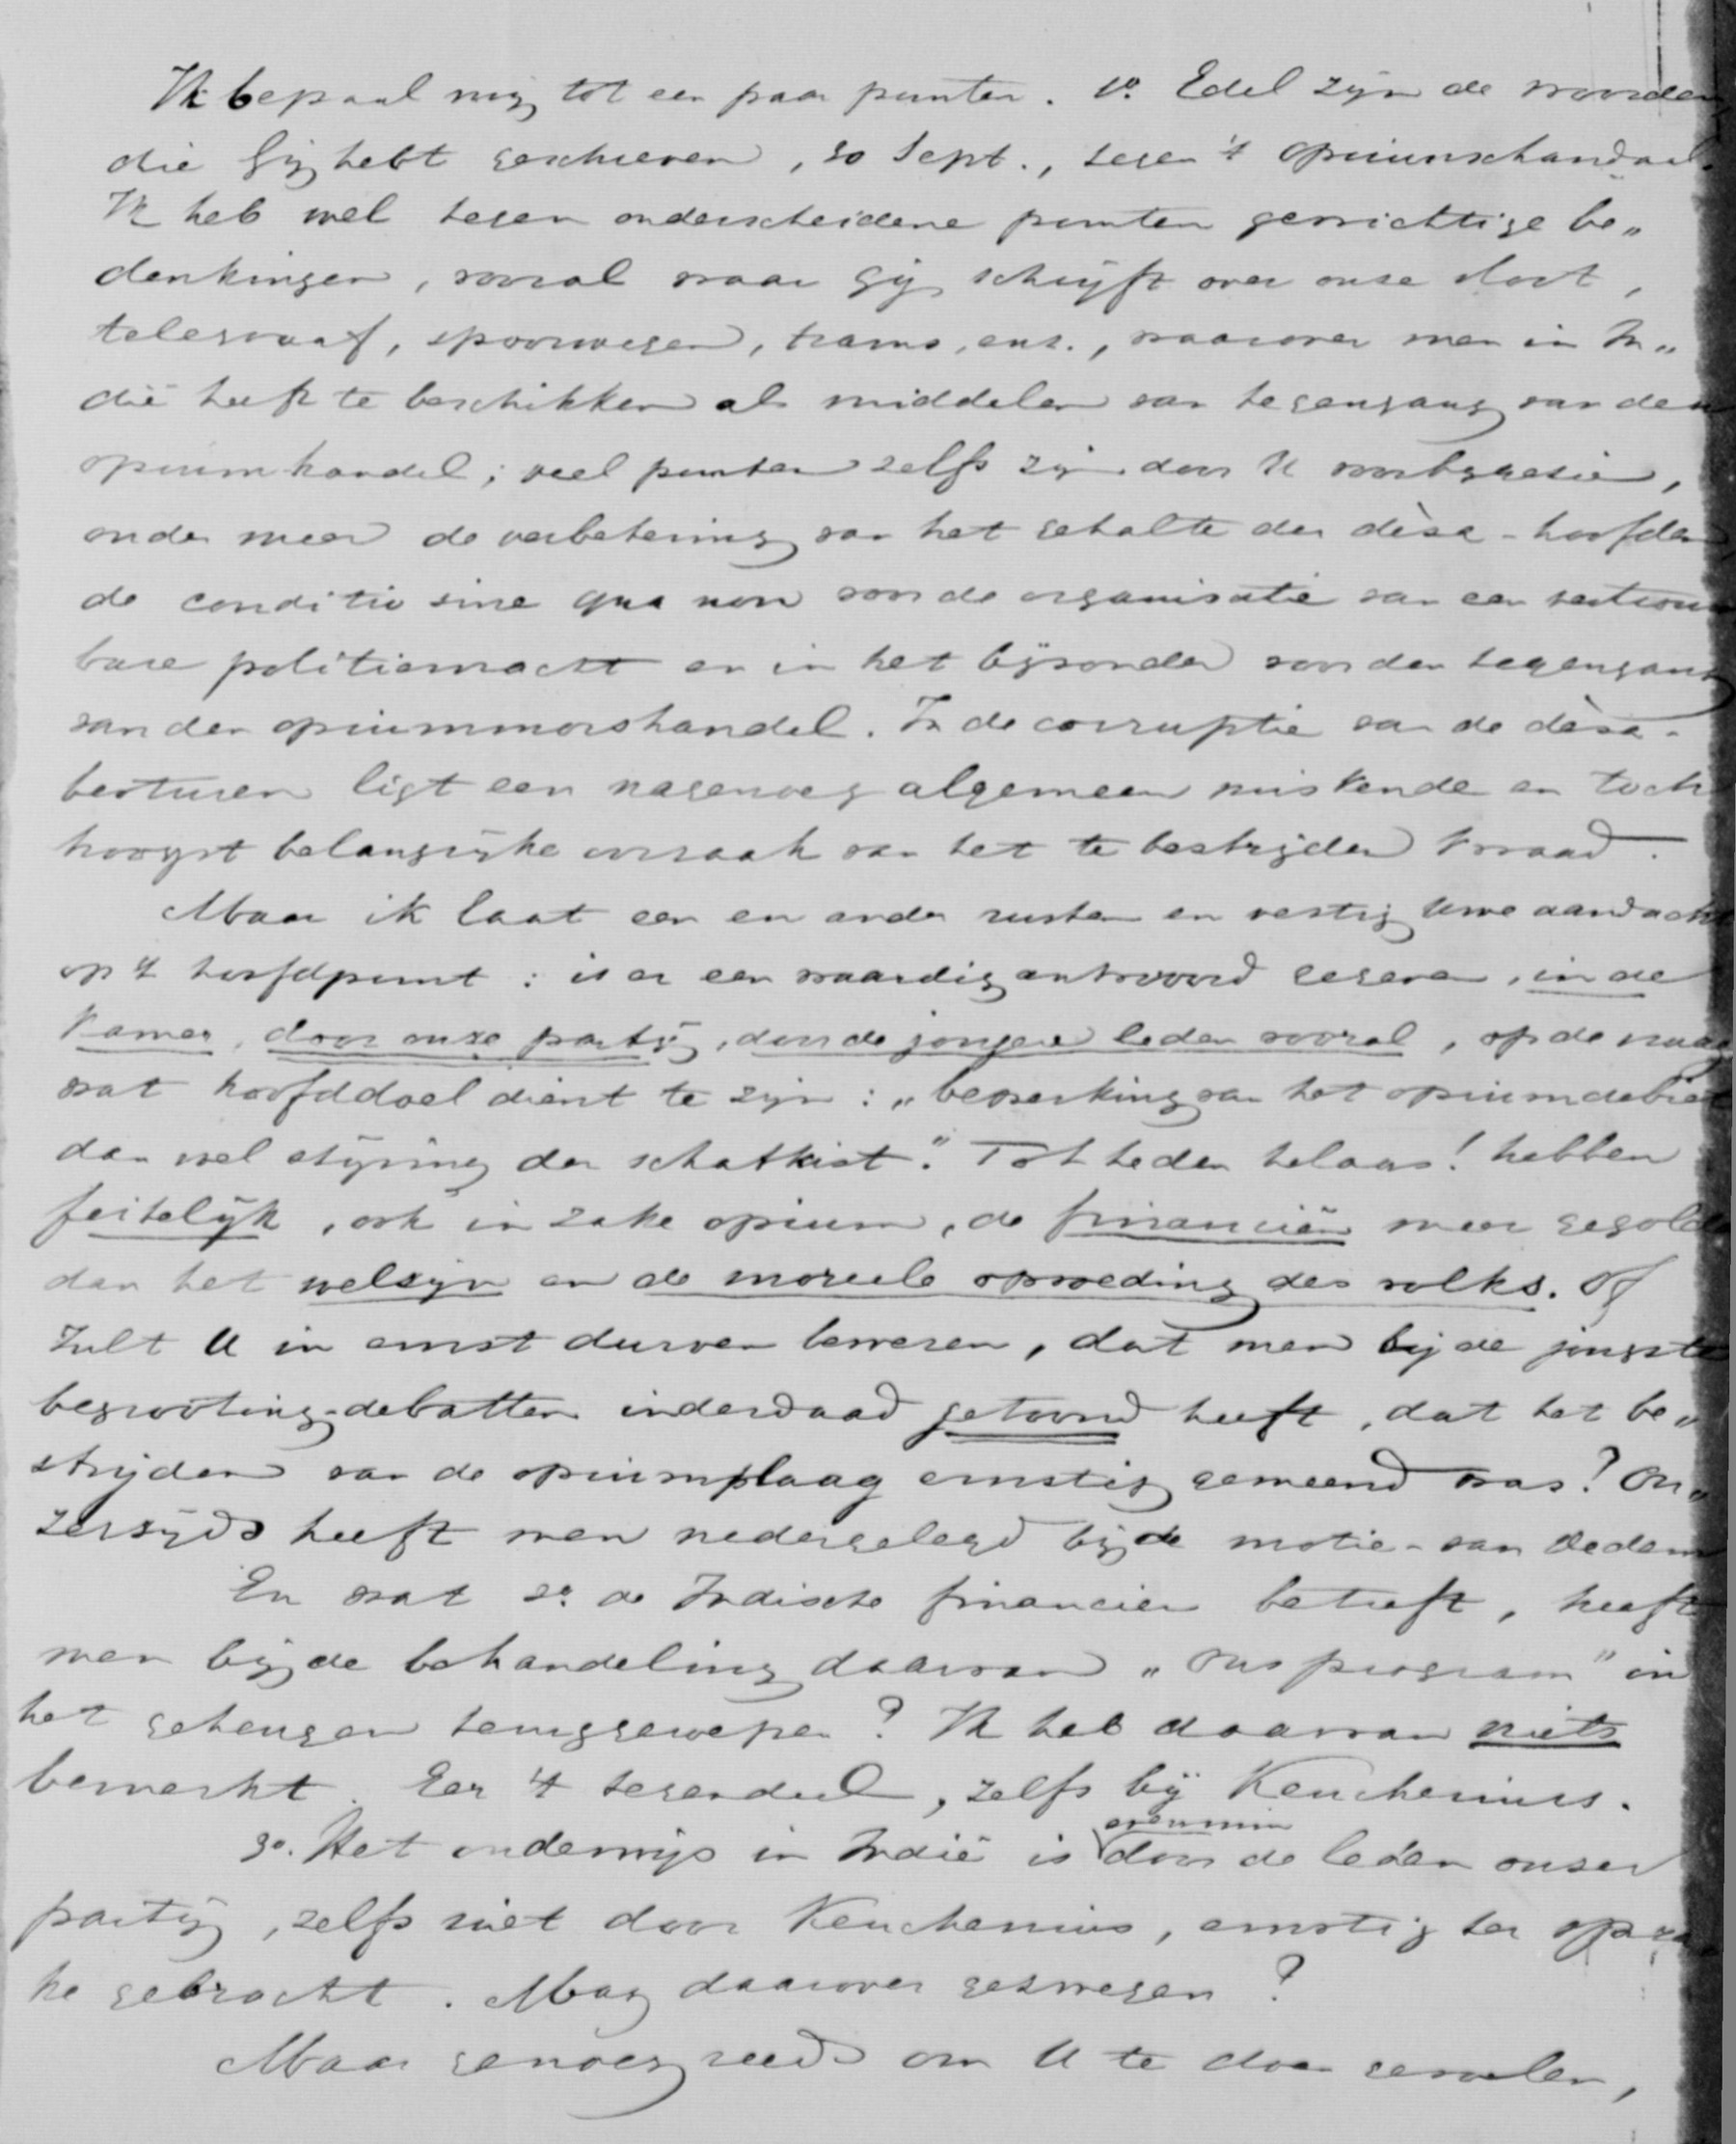 Ik bepaal mij tot een paar punten. 1o. Edel zijn de woorden
die Gij hebt geschreven, 30 Sept., tegen 't opiumschandaal.
Ik heb wel tegen onderscheidene punten gewichtige be„
denkingen, vooral waar Gij schrijft over onze vloot,
telegraaf, spoorwegen, trams, enz., waarover men in In„
dië heeft te beschikken als middelen van tegengang van den
opiumhandel; veel punten zelfs zijn door U voorbijgezien,
onder meer de verbetering van het gehalte der dèsa-hoofden
de conditio sine qua non voor de organisatie van een vertrouw
bare politiemacht en in het bijzonder voor den tegengang
van den opiummorshandel. In de corruptie van de dèsa-
besturen ligt een nagenoeg algemeen miskende en toch
hoogst belangrijke oorzaak van het te bestrijden kwaad.
Maar ik laat een en ander rusten en vestig Uwe aandacht
op 't hoofdpunt: is er een waardig antwoord gegeven, in de
Kamer, door onze partij, door de jongere leden vooral, op de vraag
wat hoofddoel dient te zijn: „beperking van het opiumdebiet
dan wel stijving der schatkist." Tot heden helaas! hebben
feitelijk, ook in zake opium, de financiën meer gegolden
dan het welzijn en de moreele opvoeding des volks. Of
zult U in ernst durven beweren, dat men bij de jongste
begrooting-debatten inderdaad getoond heeft, dat het be„
strijden van de opiumplaag ernstig gemeend was? On„
zerzijds heeft men nedergelegd bij de motie-van Dedem
En wat 2o. de Indische financien betreft, heeft
men bij de behandeling daarvan „Ons program" in
het geheugen teruggeroepen? Ik heb daarvan niets
bemerkt. Eer 't tegendeel, zelfs bij Keuchenius.
3o. Het onderwijs in Indië is evenmin door de leden onzer
partij, zelfs niet door Keuchenius, ernstig ter spra
ke gebracht. Mag daarover gezwegen?
Maar genoeg reeds om U te doen gevoelen,